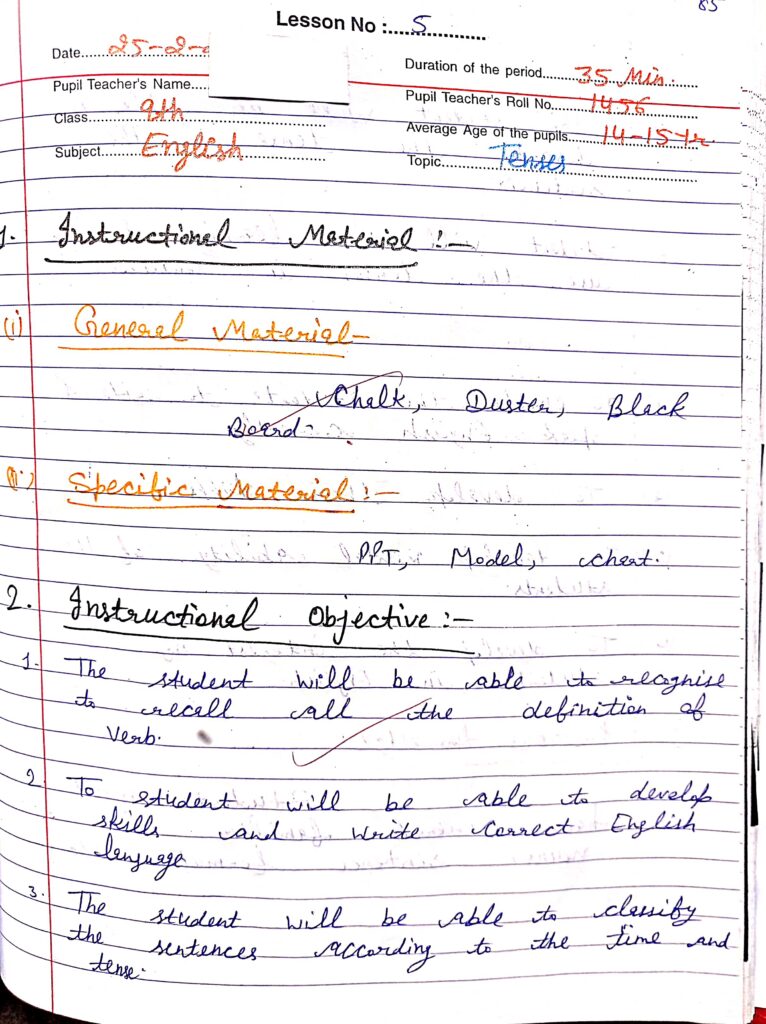 85
Lesson No :.....5
Date.....25-2-
Duration of the period.....35 Min.
Pupil Teacher's Name.....
Pupil Teacher's Roll No.....1456
Class.....9th
Average Age of the pupils.....14-15 yr
Subject.....English
Topic.....Tenses
1. Instructional Material :-
(i) General Material-
Chalk, Duster, Black
Board-
(ii) Specific Material :-
PPT, Model, chart.
2. Instructional Objective :-
1. The student will be able to recognise
to recall call the definition of
Verb.
2. To student will be able to develop
skills and write correct English
language
3. The student will be able to classify
the sentences according to the time and
tense.